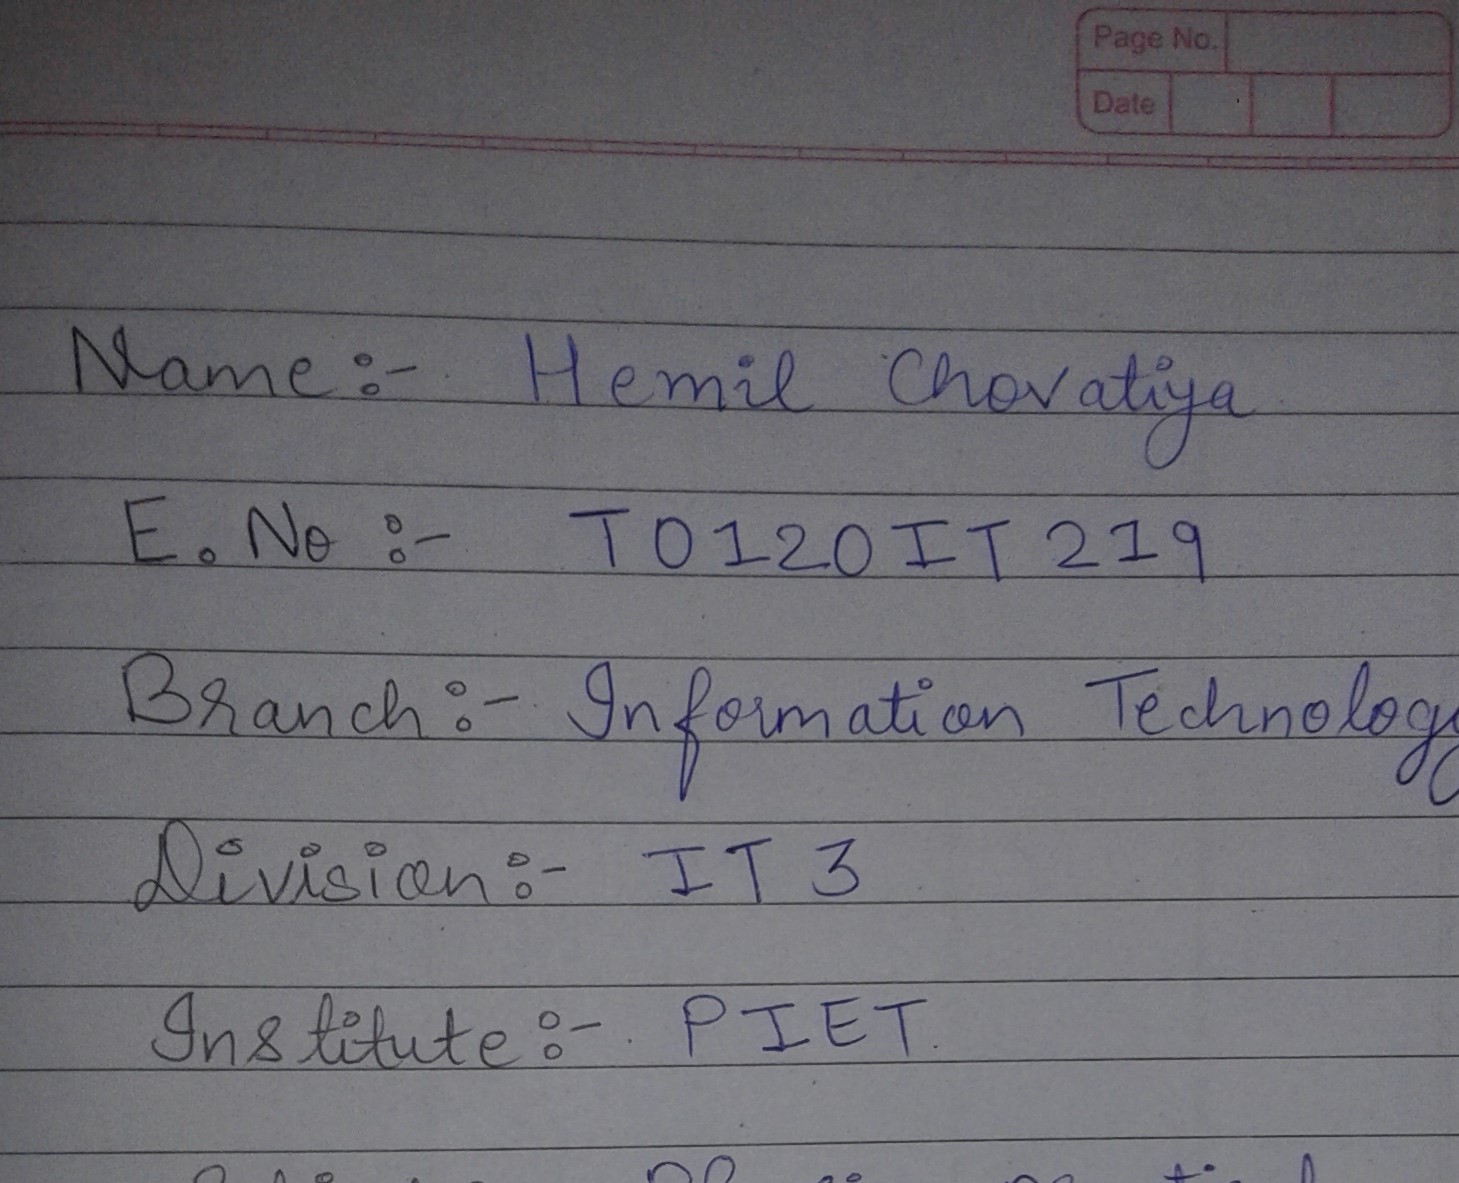 Page No.
Date
Name:- Hemil Chovatiya
E. No :- T0120IT219
Branch:- Information Technology
Division:- IT 3
Institute:- PIET.